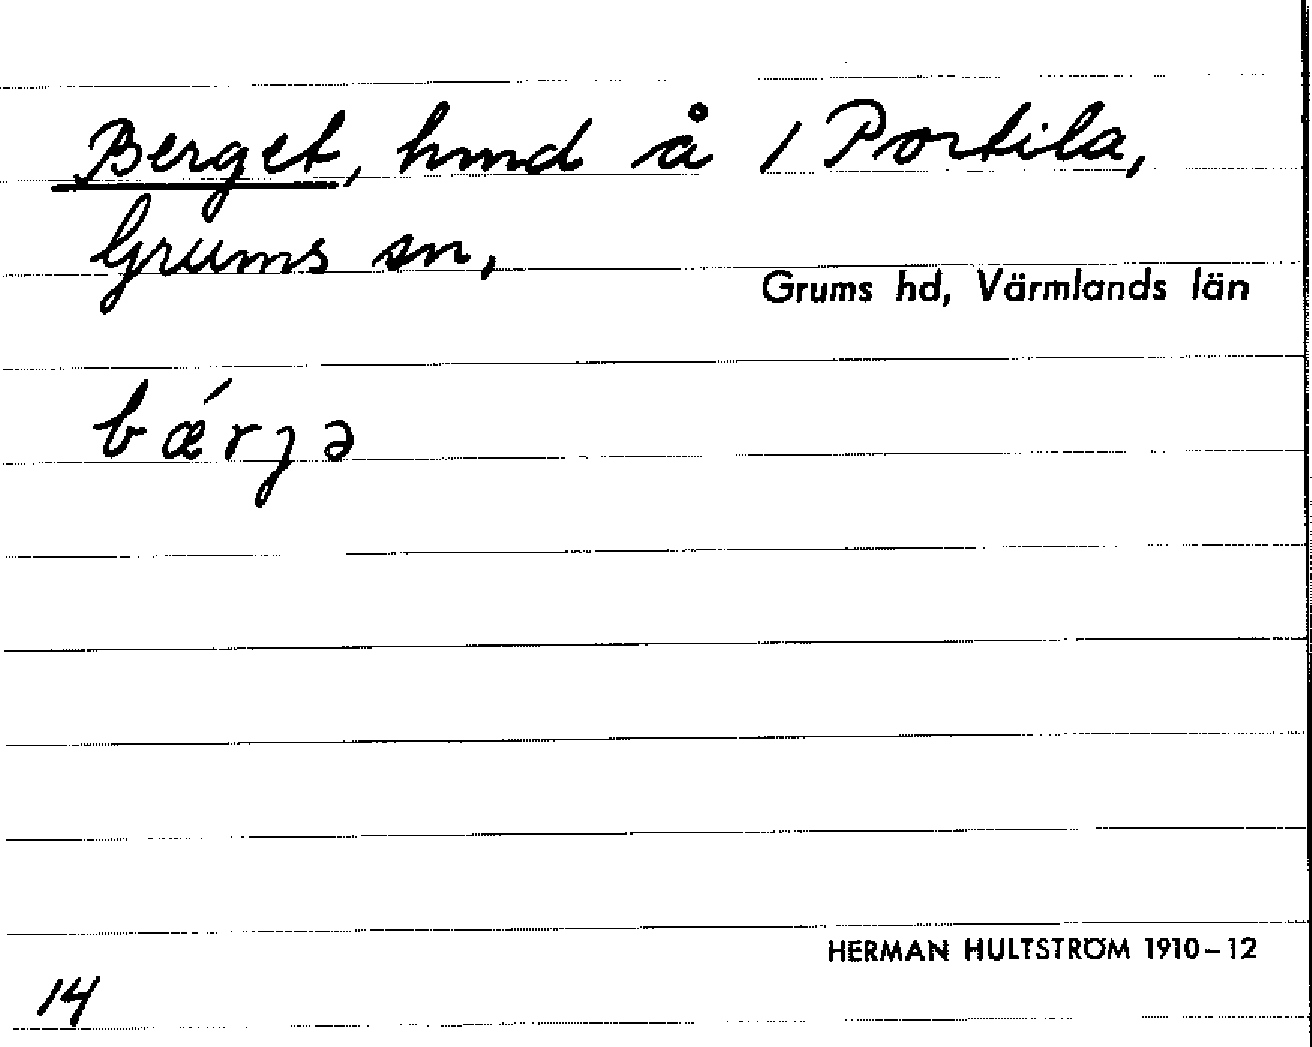 Berget, hmd å 1 Portila,
Grums sn,
Grums hd, Värmlands län
bǽrjə
HERMAN HULTSTRÖM 1910–12
14